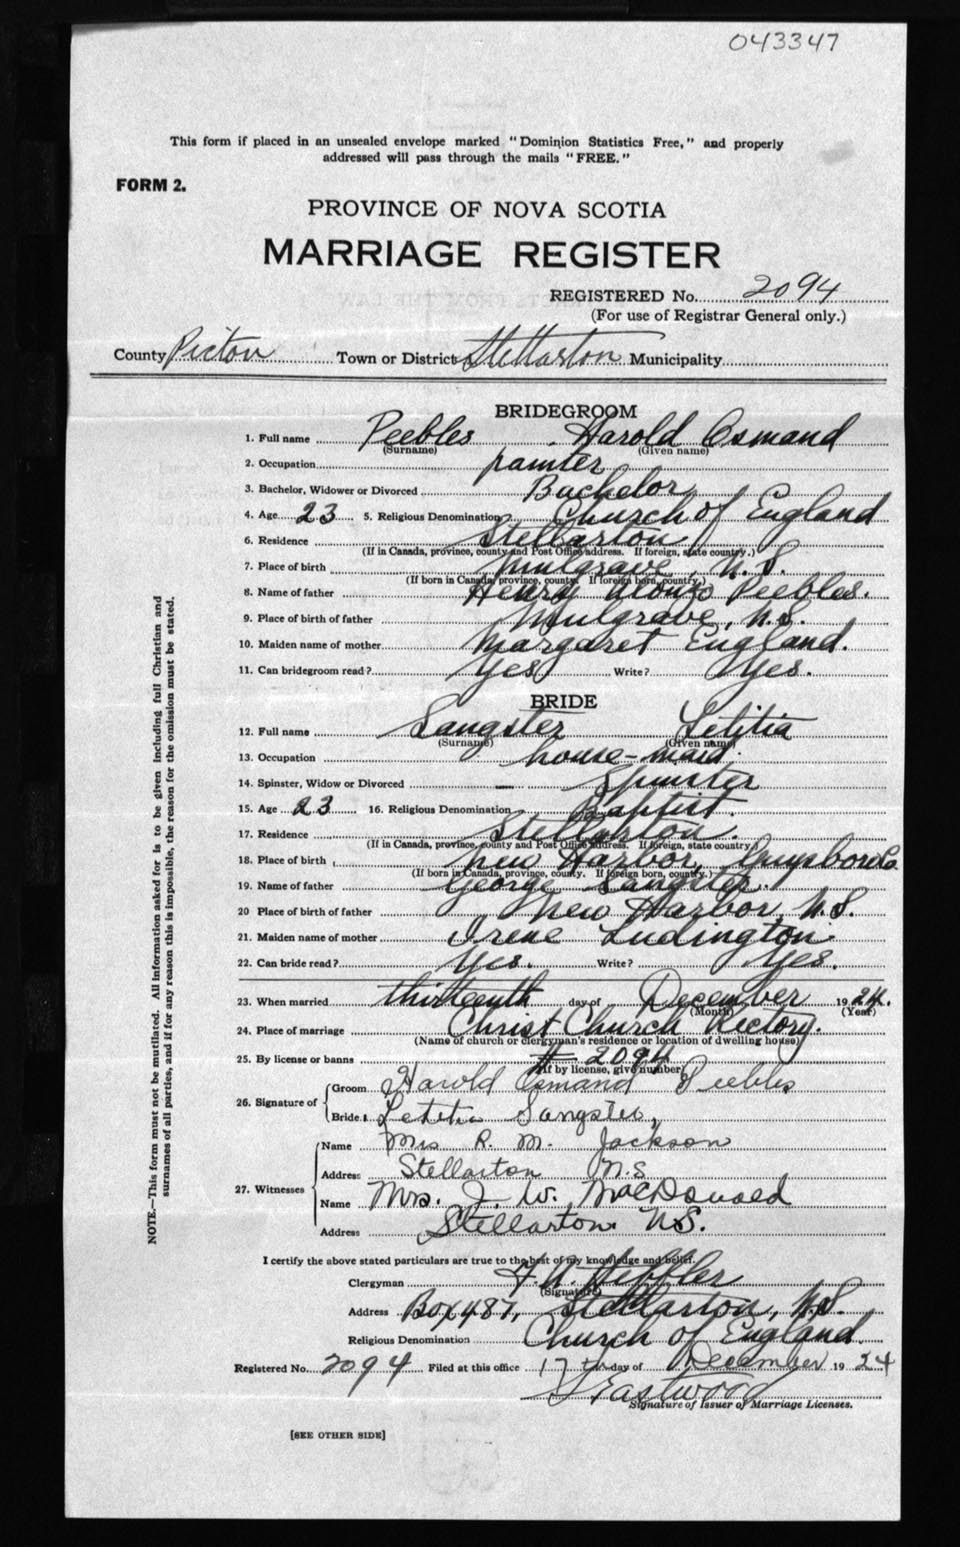 043347
This form if placed in an unsealed envelope marked "Dominion Statistics Free," and properly
addressed will pass through the mails "FREE."
FORM 2.
PROVINCE OF NOVA SCOTIA
MARRIAGE REGISTER
REGISTERED No. 2094
(For use of Registrar General only.)
County Pictou Town or District Stellarton Municipality
BRIDEGROOM
1. Full name Peebles Harold Osmand
(Surname) (Given name)
2. Occupation painter
3. Bachelor, Widower or Divorced Bachelor
4. Age 23 5. Religious Denomination Church of England
6. Residence Stellarton
(If in Canada, province, county and Post Office address. If foreign, state country.)
7. Place of birth Mulgrave, N.S.
(If born in Canada, province, county. If foreign born, country.)
8. Name of father Henry Alonzo Peebles.
9. Place of birth of father Mulgrave, N.S.
10. Maiden name of mother Margaret England.
11. Can bridegroom read? Yes Write? Yes.
BRIDE
12. Full name Sangster Letitia
(Surname) (Given name)
13. Occupation house-maid.
14. Spinster, Widow or Divorced Spinster
15. Age 23 16. Religious Denomination Baptist.
17. Residence Stellarton.
(If in Canada, province, county and Post Office address. If foreign, state country.)
18. Place of birth New Harbor, Guysboro Co.
(If born in Canada, province, county. If foreign born, country.)
19. Name of father George Sangster.
20 Place of birth of father New Harbor, N.S.
21. Maiden name of mother Irene Ludington.
22. Can bride read? Yes. Write? Yes.
23. When married thirteenth day of December 1924.
(Month) (Year)
24. Place of marriage Christ Church Rectory.
(Name of church or clergyman's residence or location of dwelling house)
25. By license or banns # 2094
(If by license, give number)
26. Signature of Groom Harold Osmand Peebles
Bride Letitia Sangster,
27. Witnesses Name Mrs R. M. Jackson
Address Stellarton N.S
Name Mrs. J. W. MacDonald
Address Stellarton N.S.
I certify the above stated particulars are true to the best of my knowledge and belief.
Clergyman
(Signature)
Address Box 487, Stellarton, N.S.
Religious Denomination Church of England.
Registered No. 2094 Filed at this office 17th day of December 1924
Eastwood
Signature of Issuer of Marriage Licenses.
[SEE OTHER SIDE]
NOTE.—This form must not be mutilated. All information asked for is to be given including full Christian and
surnames of all parties, and if for any reason this is impossible, the reason for the omission must be stated.